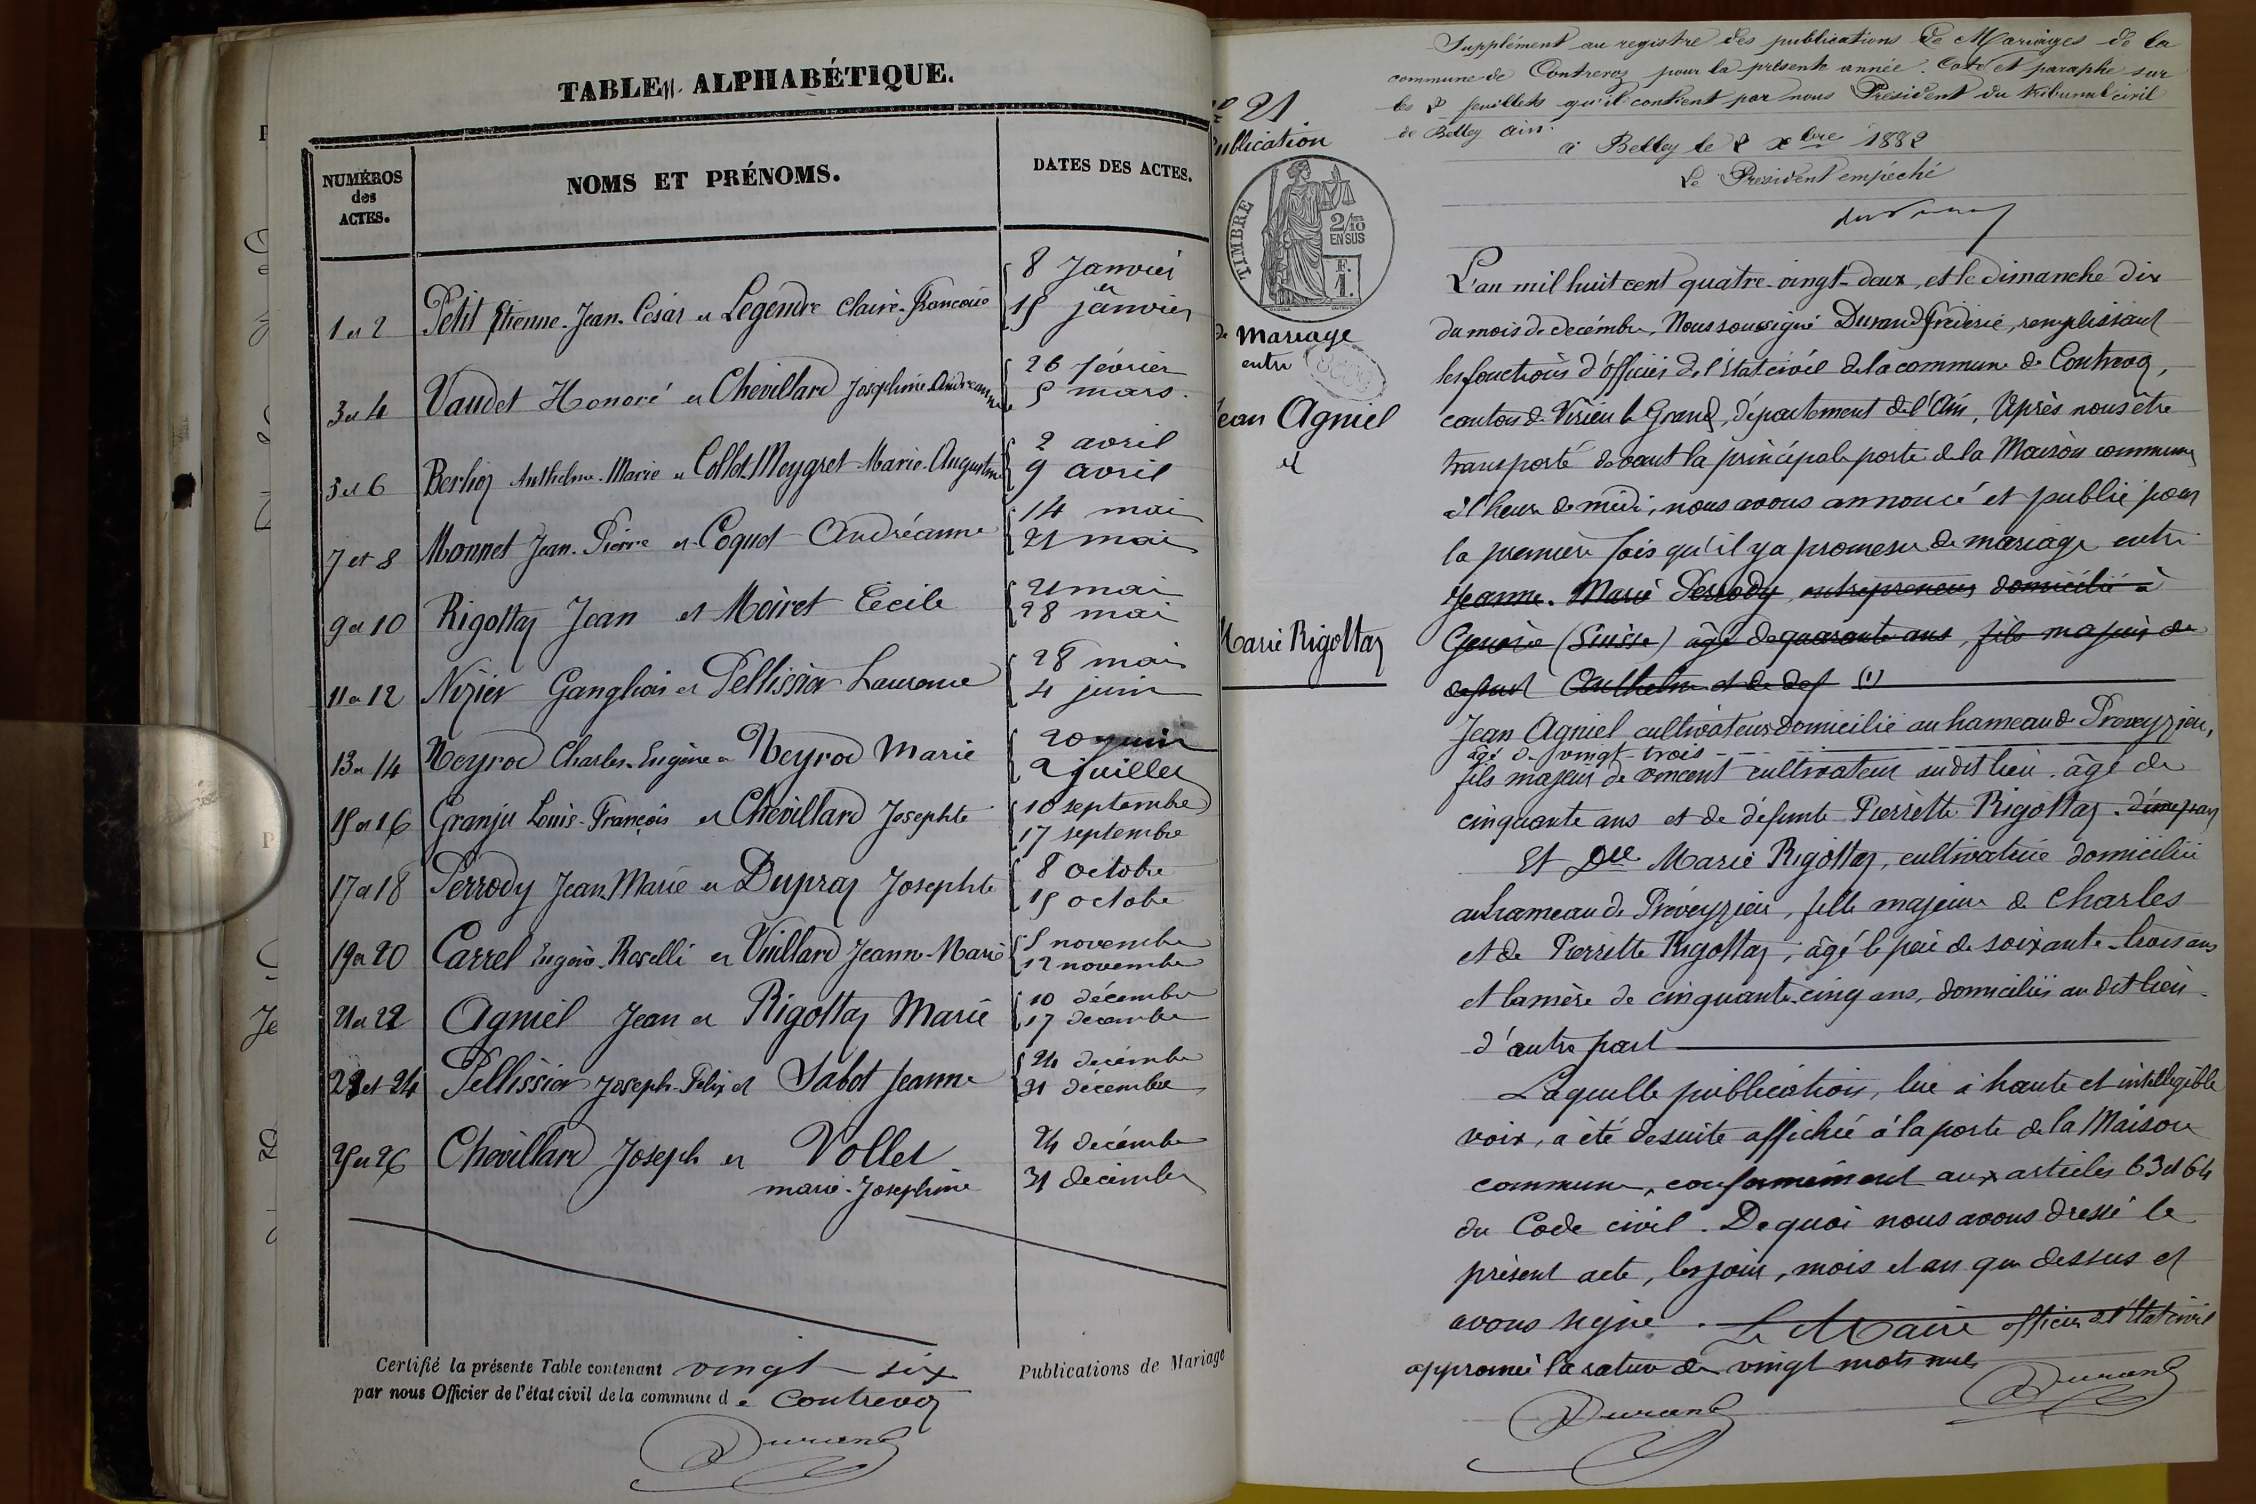 TABLE ALPHABÉTIQUE.
NUMÉROS des ACTES.
NOMS ET PRÉNOMS.
DATES DES ACTES.
1 et 2 Petit Etienne-Jean-César et Legendre Claire-Françoise 8 Janvier et 15 janvier
3 et 4 Vaudet Honoré et Chevillard Joséphine-Andréanne 26 février 5 mars.
5 et 6 Berlioz Anthelme-Marie et Collot-Meygret Marie-Augustine 2 avril 9 avril
7 et 8 Monnet Jean-Pierre et Coquet Andréanne 14 mai 21 mai
9 et 10 Rigottaz Jean et Moiret Cécile 21 mai 28 mai
11 et 12 Nizier Ganglion et Pellissier Laurence 28 mai 4 juin
13 et 14 Neyrod Charles-Eugène et Neyrod Marie 20 juin 2 juillet
15 et 16 Granju Louis-François et Chevillard Josephte 10 septembre 17 septembre
17 et 18 Perrody Jean-Marie et Dupraz Josephte 8 octobre 15 octobre
19 et 20 Carrel Eugène-Roselli et Vuillard Jeanne-Marie 5 novembre 12 novembre
21 et 22 Agniel Jean et Rigottaz Marie 10 décembre 17 décembre
23 et 24 Pellissier Joseph-Félix et Sabot Jeanne 24 décembre 31 décembre
25 et 26 Chevillard Joseph et Vollet 24 décembre
marie-Josephine 31 décembre
Certifié la présente Table contenant vingt-six Publications de Mariage
par nous Officier de l'état civil de la commune de Contrevoz
Durand
Supplément au registre des publications de Mariages de la
commune de Contrevoz pour la présente année. Coté et paraphé sur
les 2 feuillets qu'il contient par nous Président du tribunal civil
de Belley Ain.
à Belley le 2 xbre 1882
Le Président empêché
No 21
Publication
TIMBRE
2/10 EN SUS
F. 1.
de Mariage
entre
Jean Agniel
et
Marie Rigottaz
L'an mil huit cent quatre-vingt-deux, et le dimanche dix
du mois de décembre, Nous soussigné Durand Fréderic, remplissant
les fonctions d'officier de l'état civil de la commune de Contrevoz,
canton de Virieu le Grand, département de l'Ain, Après nous être
transporté devant la principale porte de la Maison commune
à l'heure de midi, nous avons annoncé et publié pour
la première fois qu'il y a promesse de mariage entre
Jeanne-Marie Perrody, entrepreneur domicilié à
Genève (Suisse) âgé de quarante ans, fils majeur de
défunt Anthelme et de def (1)
Jean Agniel cultivateur domicilié au hameau de Preveyzieu,
âgé de vingt-trois
fils majeur de vincent cultivateur audit lieu. âgé de
cinquante ans et de défunte Pierrette Rigottaz. d'une part
Et Dlle Marie Rigottaz, cultivatrice domiciliée
au hameau de Préveyzieu, fille majeure de Charles
et de Pierrette Rigottaz, âgé le père de soixante-trois ans
et la mère de cinquante-cinq ans, domiciliés audit lieu.
d'autre part
Laquelle publication, lue à haute et intelligible
voix, a été desuite affichée à la porte de la Maison
commune, conformément aux articles 63 et 64
du Code civil. De quoi nous avons dressé le
présent acte, les jour, mois et an que dessus et
avons signé. Le Maire officier de l'Etat civil
approuvé la rature de vingt mots nuls
Durand
Durand